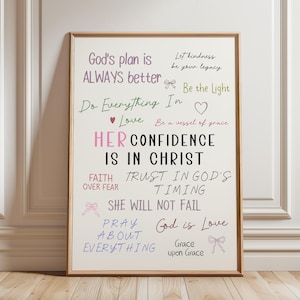 God's plan is
ALWAYS better
Let kindness
be your legacy
Be the Light
Do Everything In
Love
Be a vessel of grace
HER CONFIDENCE
IS IN CHRIST
FAITH
OVER FEAR
TRUST IN GOD'S
TIMING
SHE WILL NOT FAIL
PRAY
ABOUT
EVERYTHING
God is Love
Grace
upon Grace